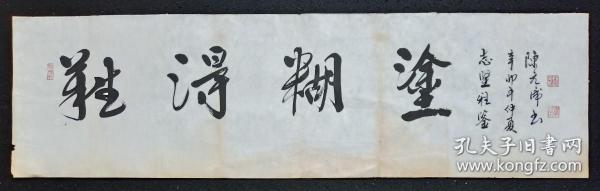 難得糊塗
志堅雅鑒
辛卯年仲夏
陳元
书
孔夫子旧书网
www.kongfz.com